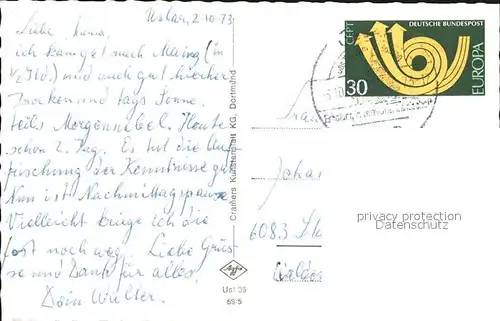 Uslar, 2.10.73
Liebe Mama,
ich kam gut nach Mainz (in
Std.) und auch gut hierher
Trocken und tags Sonne.
teils Morgennebel. Heute
schon 2. Tag. Es tut die Auf-
frischung der Kenntnisse gut
Nun ist Nachmittagspause
Vielleicht kriege ich die
Post noch weg. Liebe Grüs-
se und Dank für alles!
Dein Walter.
Cramers Kunstanstalt KG, Dortmund
Agfa
Usl 05
69/5
CEPT
DEUTSCHE BUNDESPOST
EUROPA
30
Frau
Joha
6083
Walldor
privacy protection
Datenschutz